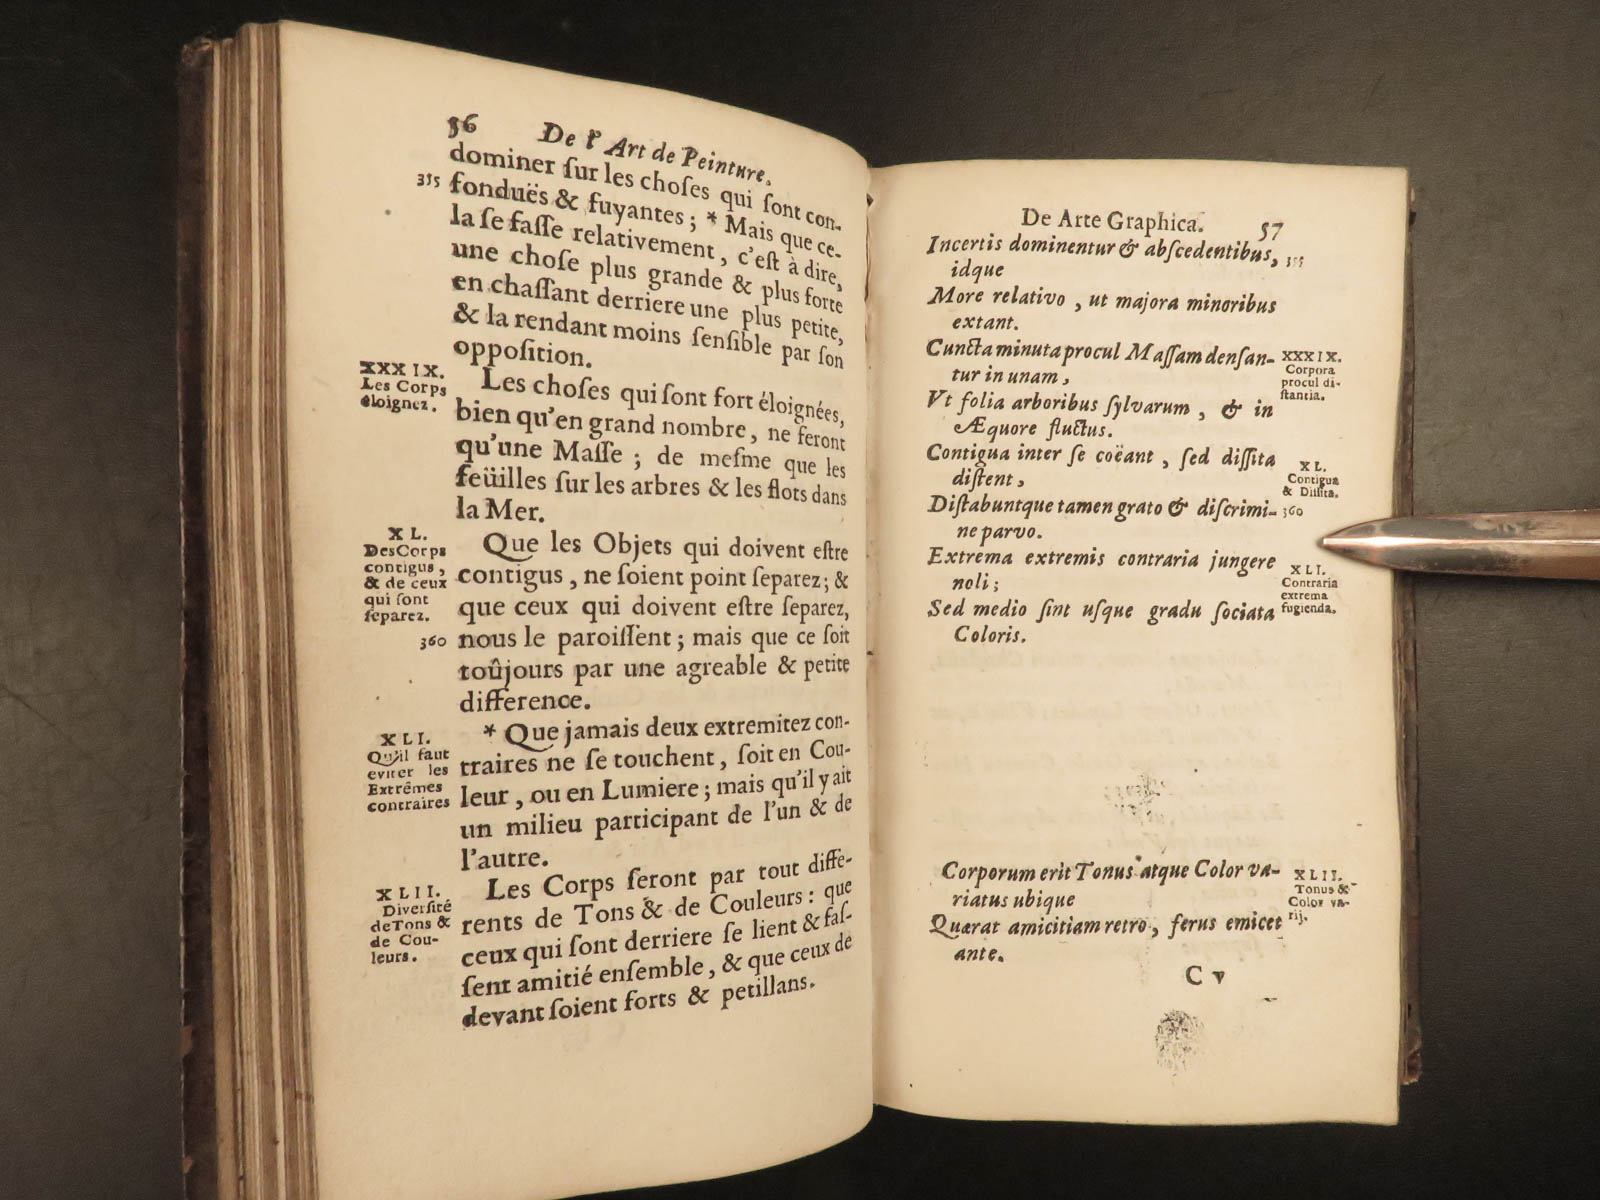 56 De l'Art de Peinture.
dominer ſur les choſes qui ſont con-
355 fonduës & fuyantes; * Mais que ce-
la ſe faſſe relativement, c'eſt à dire,
une choſe plus grande & plus forte
en chaſſant derriere une plus petite,
& la rendant moins ſenſible par ſon
oppoſition.
XXXIX.
Les Corps
éloignez.
Les choſes qui ſont fort éloignées,
bien qu'en grand nombre, ne feront
qu'une Maſſe; de meſme que les
feüilles ſur les arbres & les flots dans
la Mer.
XL.
Des Corps
contigus,
& de ceux
qui ſont
ſeparez.
Que les Objets qui doivent eſtre
contigus, ne ſoient point ſeparez; &
que ceux qui doivent eſtre ſeparez,
360 nous le paroiſſent; mais que ce ſoit
toûjours par une agreable & petite
difference.
XLI.
Qu'il faut
eviter les
Extrêmes
contraires
* Que jamais deux extremitez con-
traires ne ſe touchent, ſoit en Cou-
leur, ou en Lumiere; mais qu'il y ait
un milieu participant de l'un & de
l'autre.
XLII.
Diverſité
de Tons &
de Cou-
leurs.
Les Corps ſeront par tout diffe-
rents de Tons & de Couleurs: que
ceux qui ſont derriere ſe lient & faſ-
ſent amitié enſemble, & que ceux de
devant ſoient forts & petillans.
De Arte Graphica. 57
Incertis dominentur & abſcedentibus,
idque
More relativo, ut majora minoribus
extant.
Cuncta minuta procul Maſſam denſan-
tur in unam,
Vt folia arboribus ſylvarum, & in
Æquore fluctus.
XXXIX.
Corpora
procul di-
ſtantia.
Contigua inter ſe coëant, ſed diſſita
diſtent,
Diſtabuntque tamen grato & diſcrimi- 360
ne parvo.
XL.
Contigua
& Diſſita.
Extrema extremis contraria jungere
noli;
Sed medio ſint uſque gradu ſociata
Coloris.
XLI.
Contraria
extrema
fugienda.
Corporum erit Tonus atque Color va-
riatus ubique
Quærat amicitiam retro, ferus emicet
ante.
XLII.
Tonus &
Color va-
rij.
C v